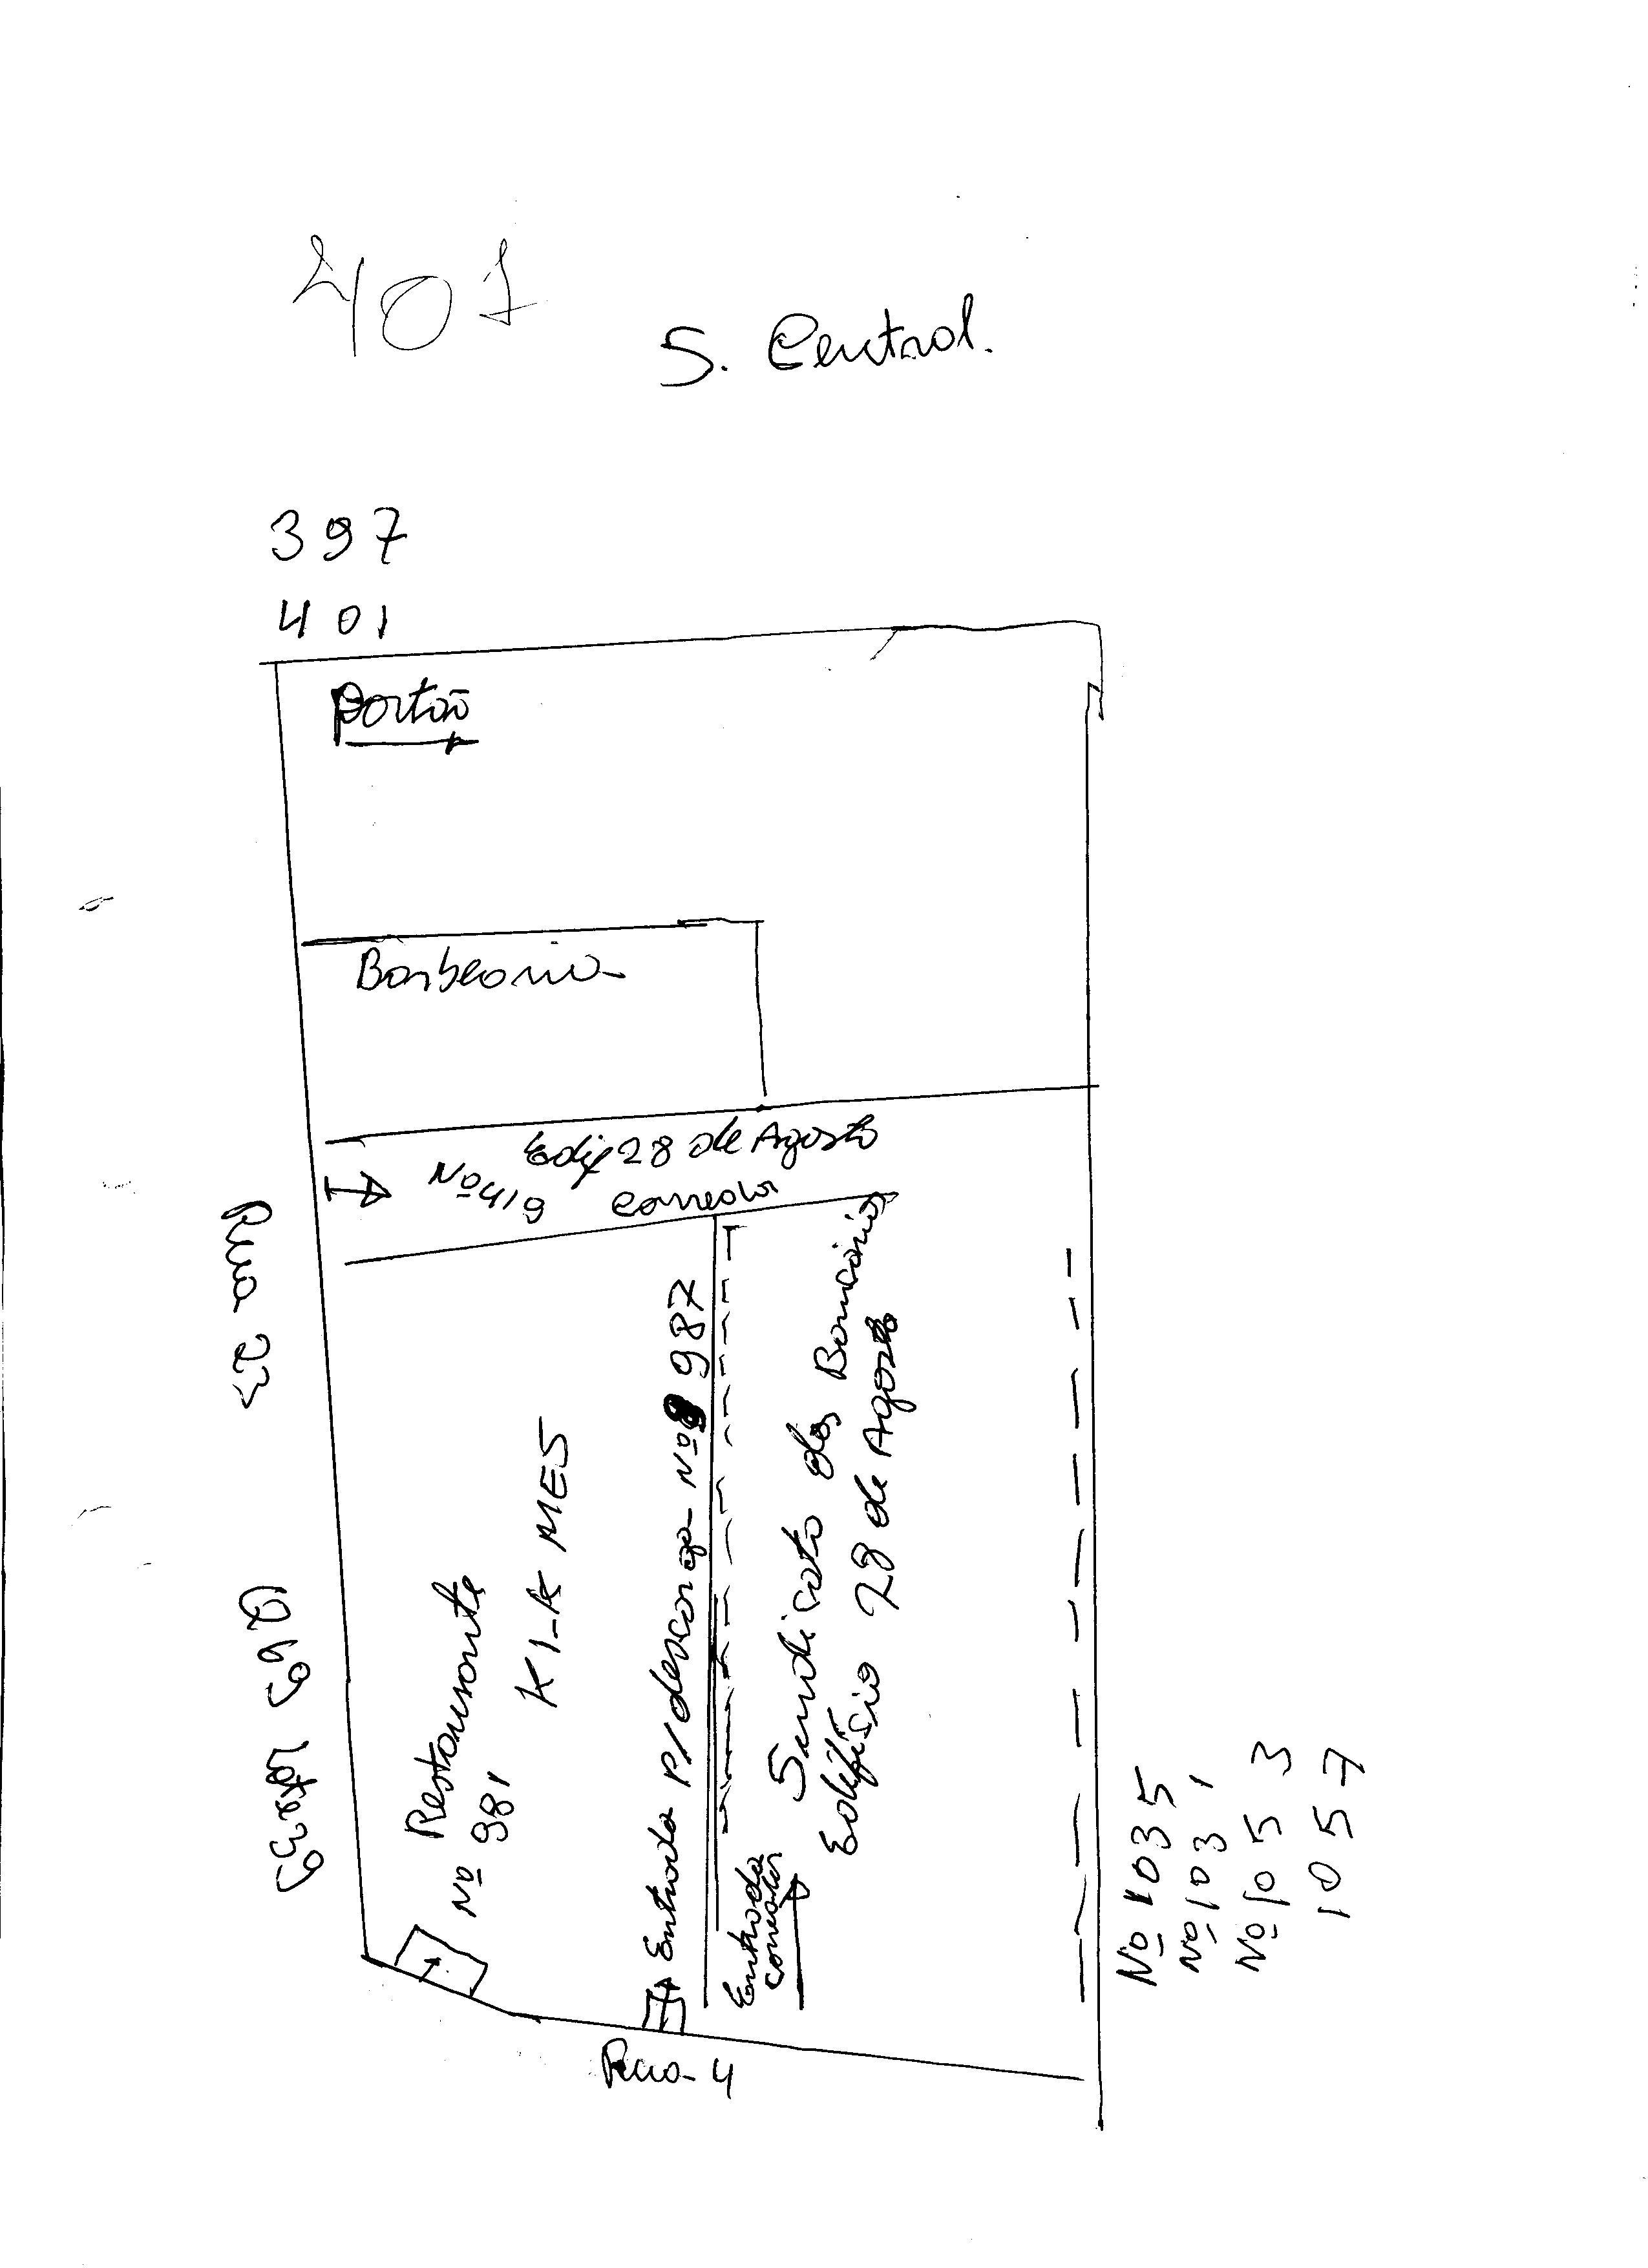 401
S. Central.
397
401
Portão
Barbearia
Edif 28 de Agosto
Nº 419 corredor
Rua 23
Q 69 Lote 39
Restaurante
Nº 981
KI-K MES
Entrada P/descarga Nº 987
Entrada
corredor
Sindicato dos Bancários
Edifício 28 de Agosto
Rua-4
Nº 1035
Nº 1031
Nº 1053
1057